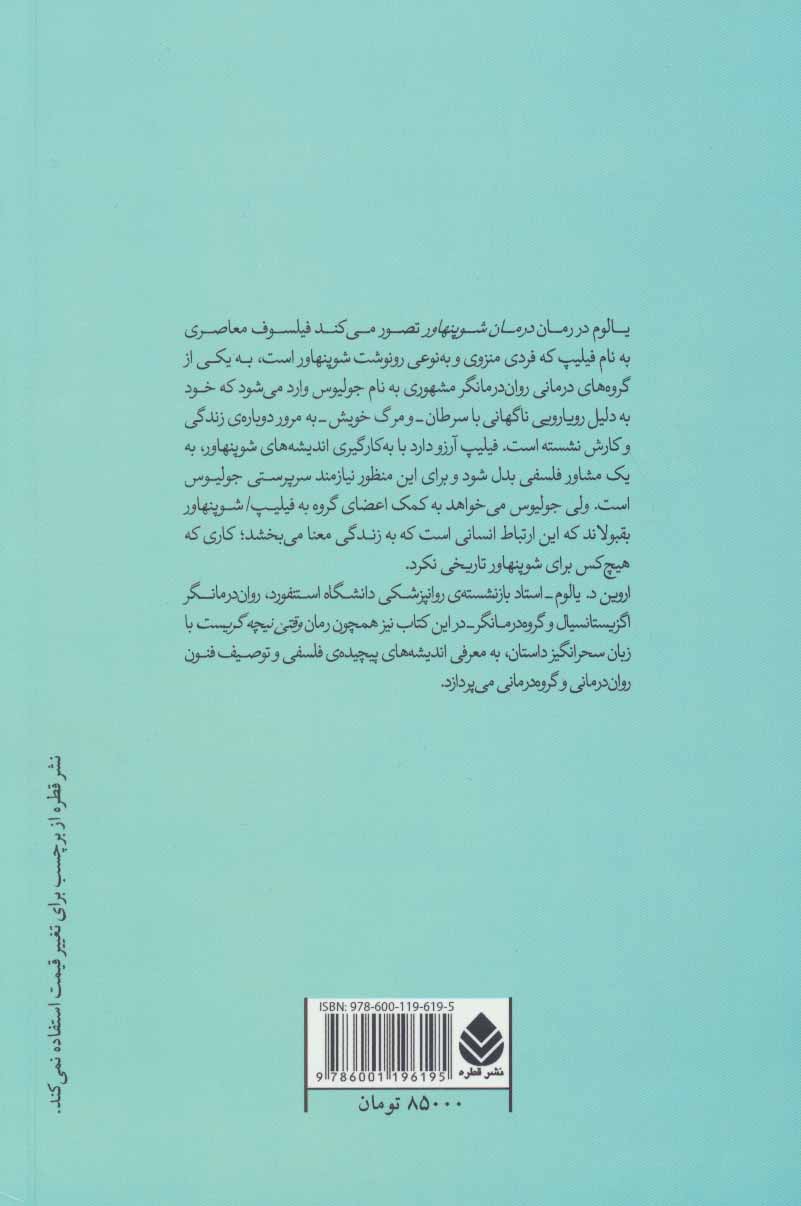 یالوم در رمان درمان شوپنهاور تصور می‌کند فیلسوف معاصری
به نام فیلیپ که فردی منزوی و به‌نوعی رونوشت شوپنهاور است، به یکی از
گروه‌های درمانی روان‌درمانگر مشهوری به نام جولیوس وارد می‌شود که خود
به دلیل رویارویی ناگهانی با سرطان ـ و مرگ خویش ـ به مرور دوباره‌ی زندگی
و کارش نشسته است. فیلیپ آرزو دارد با به‌کارگیری اندیشه‌های شوپنهاور، به
یک مشاور فلسفی بدل شود و برای این منظور نیازمند سرپرستی جولیوس
است. ولی جولیوس می‌خواهد به کمک اعضای گروه به فیلیپ/ شوپنهاور
بقبولاند که این ارتباط انسانی است که به زندگی معنا می‌بخشد؛ کاری که
هیچ‌کس برای شوپنهاور تاریخی نکرد.
اروین د. یالوم ـ استاد بازنشسته‌ی روانپزشکی دانشگاه استنفورد، روان‌درمانگر
اگزیستانسیال و گروه‌درمانگر ـ در این کتاب نیز همچون رمان وقتی نیچه گریست با
زبان سحرانگیز داستان، به معرفی اندیشه‌های پیچیده‌ی فلسفی و توصیف فنون
روان‌درمانی و گروه‌درمانی می‌پردازد.
نشر قطره از برچسب برای تغییر قیمت استفاده نمی‌کند.
ISBN: 978-600-119-619-5
9 786001 196195
نشر قطره
۸۵۰۰۰ تومان